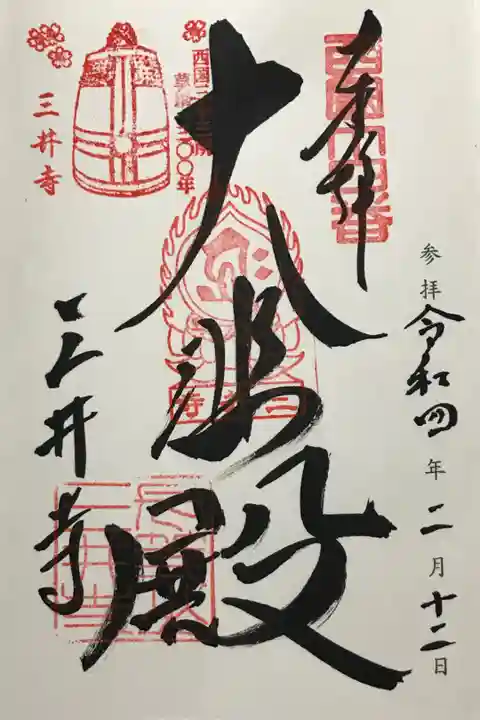 参拝 令和四年二月十二日
西国十四番
奉拝
大悲殿
西国三十三所
草創一三〇〇年
三井寺
三井寺
三井寺